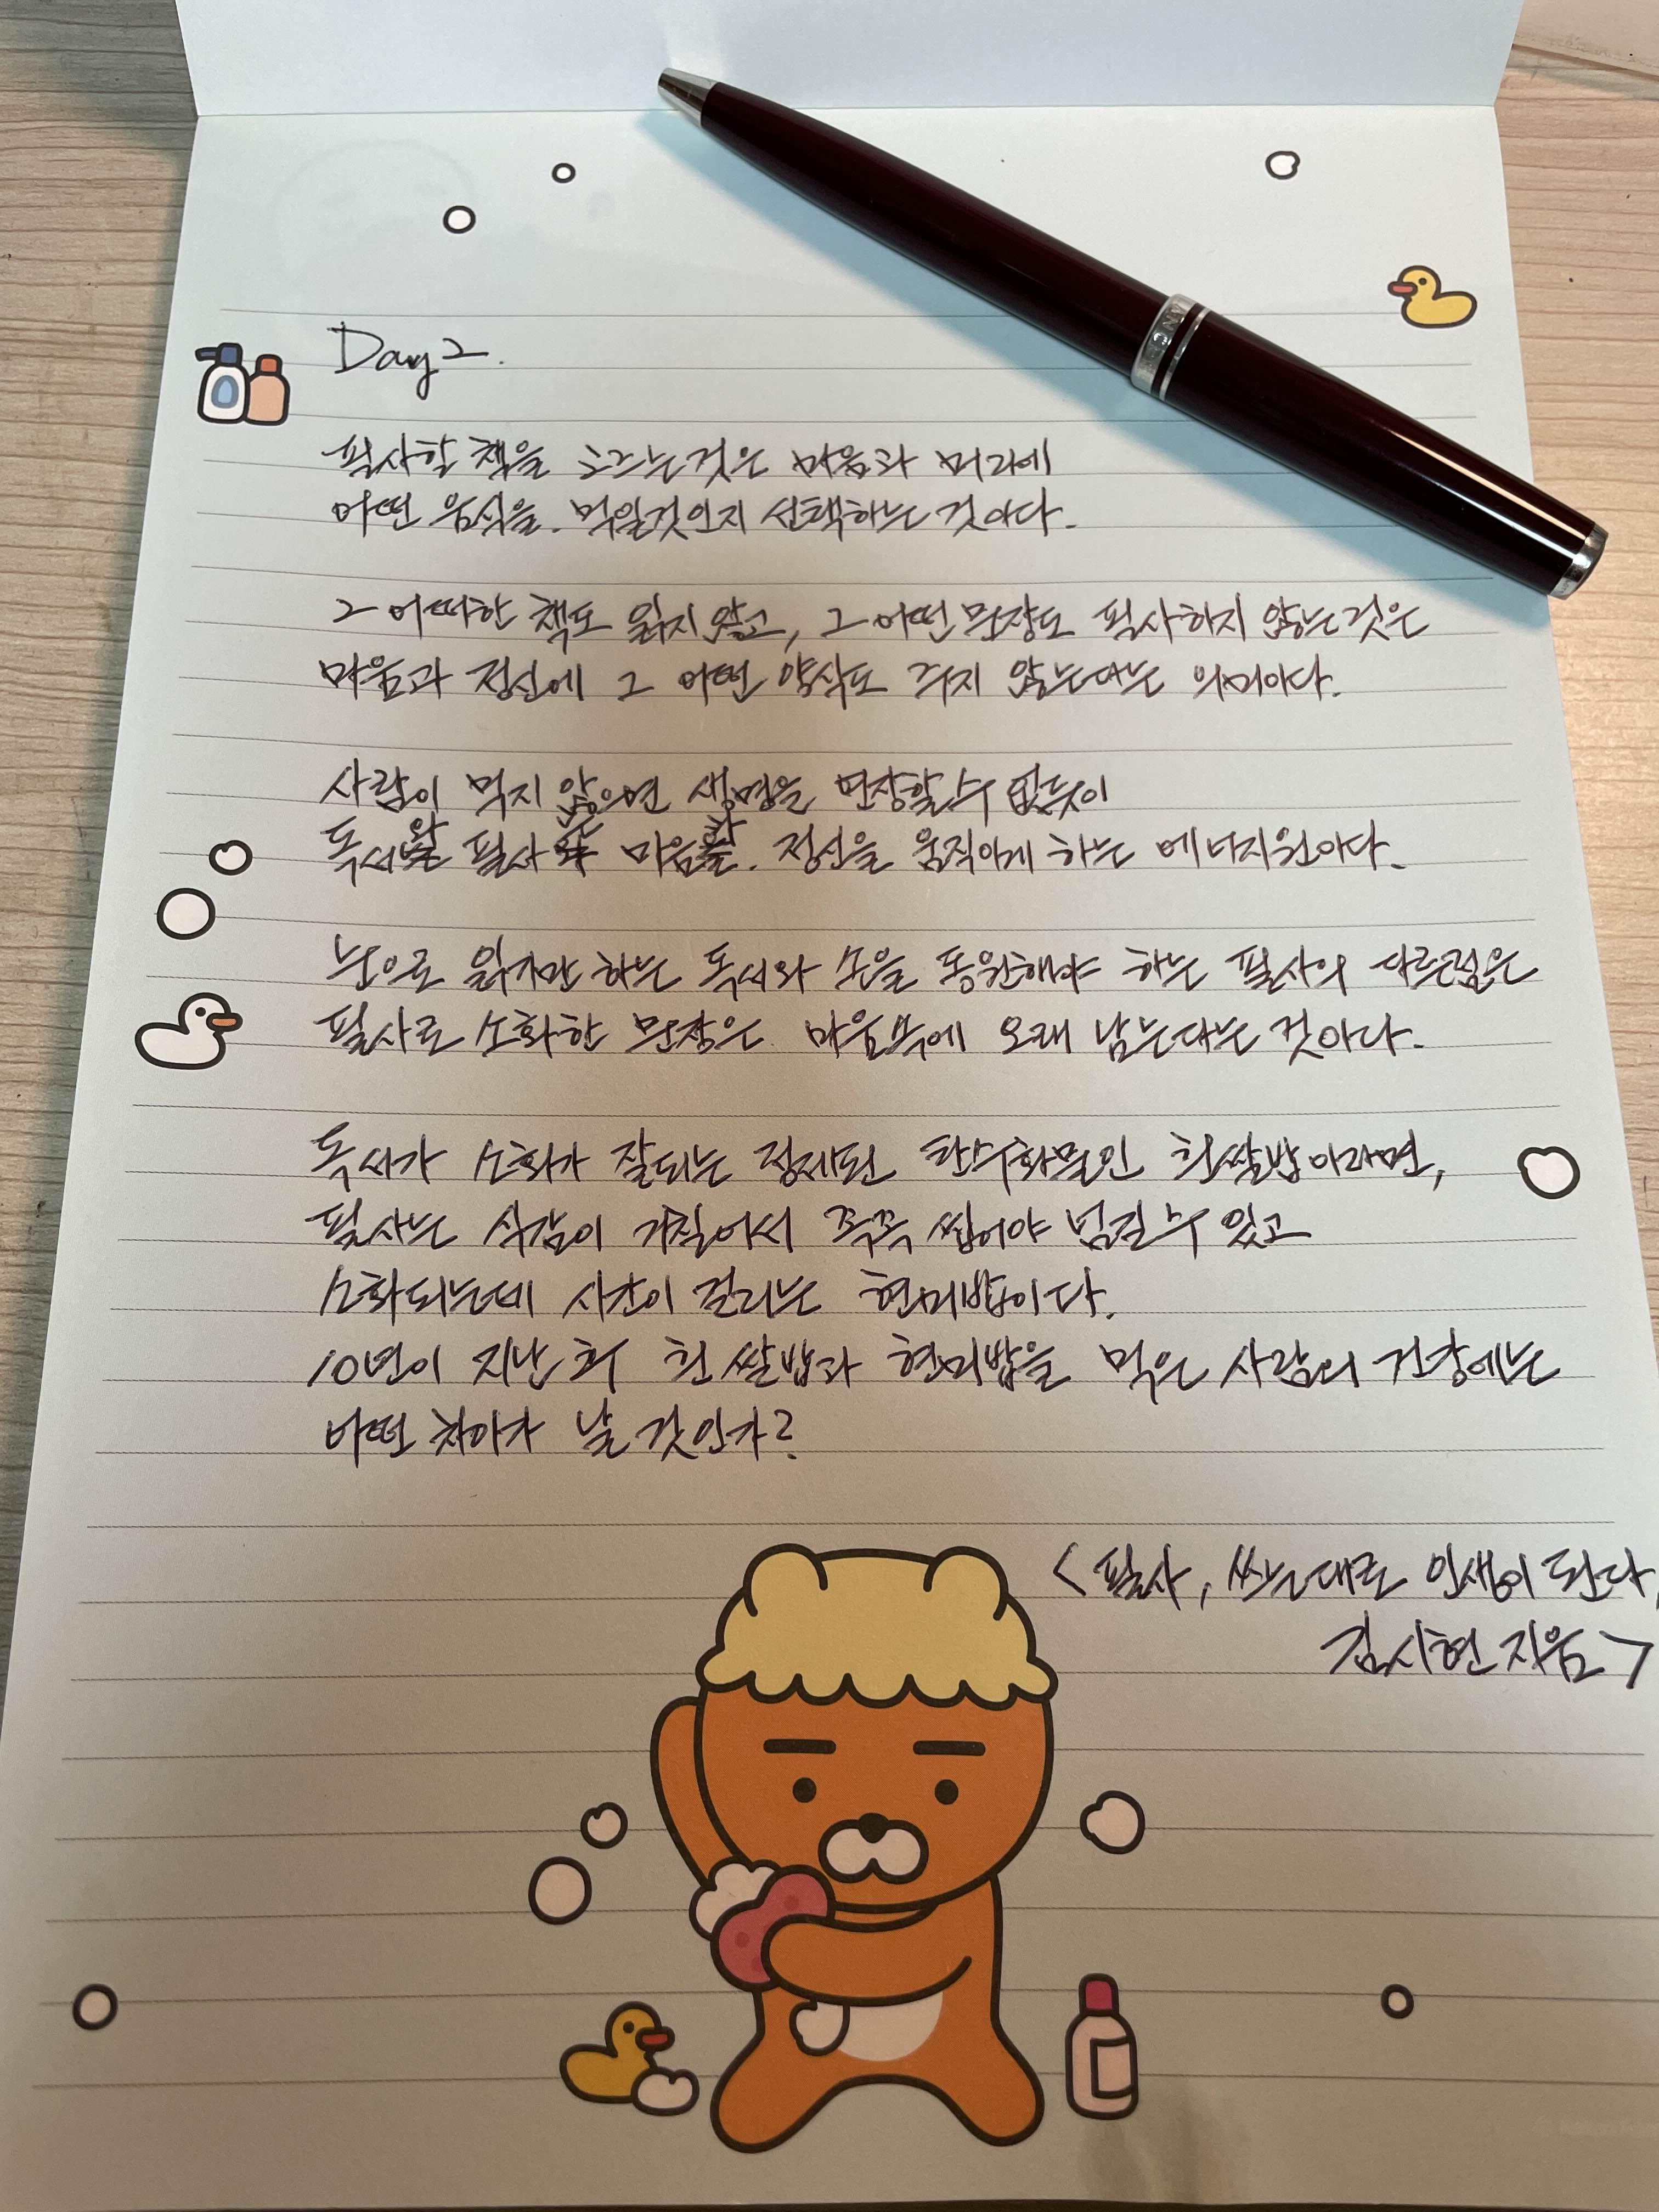 Day 2.
필사할 책을 고르는것은 마음과 머리에
어떤 음식을 먹일것인지 선택하는 것이다.
그 어떠한 책도 읽지 않고, 그 어떤 문장도 필사하지 않는 것은
마음과 정신에 그 어떤 양식도 주지 않는다는 의미이다.
사람이 먹지 않으면 생명을 연장할 수 없듯이
독서와 필사는 마음과 정신을 움직이게 하는 에너지원이다.
눈으로 읽기만 하는 독서와 손을 동원해야 하는 필사의 다른점은
필사로 소화한 문장은 마음속에 오래 남는다는 것이다.
독서가 소화가 잘되는 정제된 탄수화물인 흰쌀밥이라면,
필사는 식감이 거칠어서 꼭꼭 씹어야 넘길 수 있고
소화되는데 시간이 걸리는 현미밥이다.
10년이 지난 후 흰 쌀밥과 현미밥을 먹은 사람의 건강에는
어떤 차이가 날 것인가?
<필사, 쓰는대로 인생이 된다,
김시현 지음>